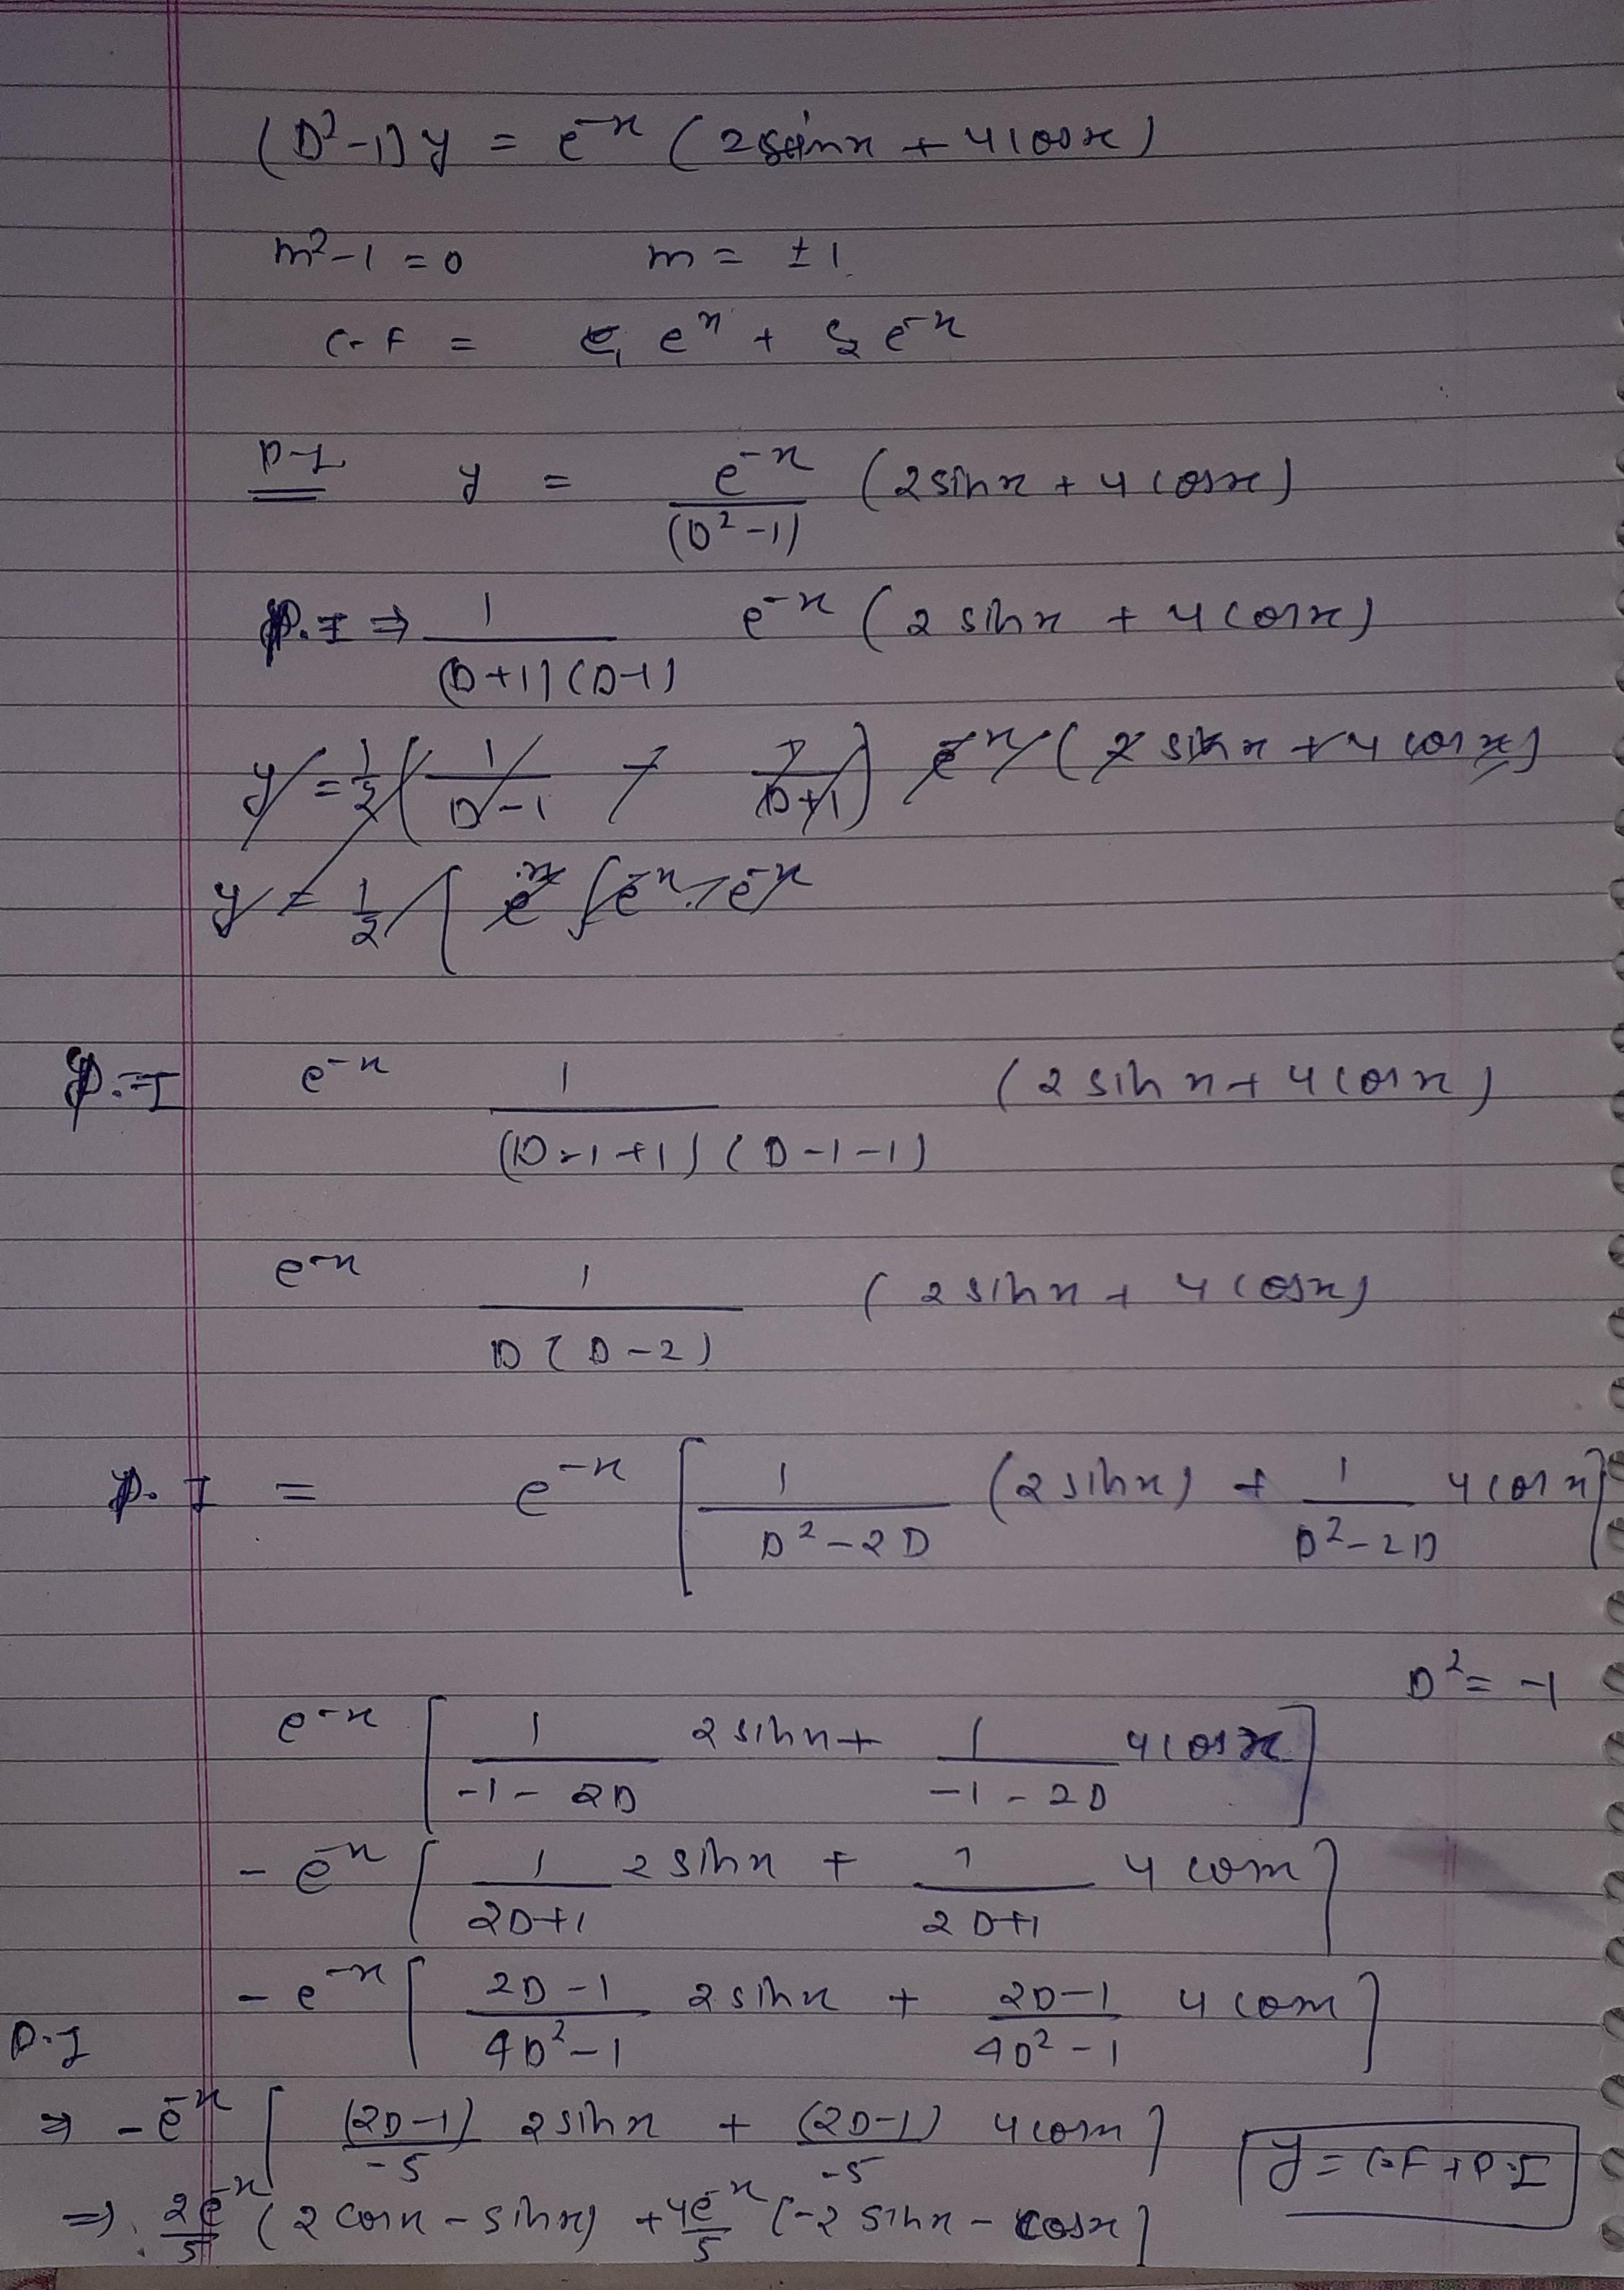 (D²-1)y = e⁻ˣ (2sinx + 4cosx)
m²-1 = 0 m = ±1
C.F = c₁ eˣ + c₂ e⁻ˣ
P.I y = e⁻ˣ/(D²-1) (2sinx + 4cosx)
P.I ⇒ 1/(D+1)(D-1) e⁻ˣ (2sinx + 4cosx)
P.I e⁻ˣ 1/(D-1+1)(D-1-1) (2sinx + 4cosx)
e⁻ˣ 1/D(D-2) (2sinx + 4cosx)
P.I = e⁻ˣ [ 1/D²-2D (2sinx) + 1/D²-2D 4cosx ]
D² = -1
e⁻ˣ [ 1/-1-2D 2sinx + 1/-1-2D 4cosx ]
- e⁻ˣ [ 1/2D+1 2sinx + 1/2D+1 4cosx ]
- e⁻ˣ [ 2D-1/4D²-1 2sinx + 2D-1/4D²-1 4cosx ]
P.I
⇒ - e⁻ˣ [ (2D-1)/-5 2sinx + (2D-1)/-5 4cosx ] y = C.F + P.I
⇒ 2e⁻ˣ/5 (2cosx - sinx) + 4e⁻ˣ/5 (-2sinx - cosx]